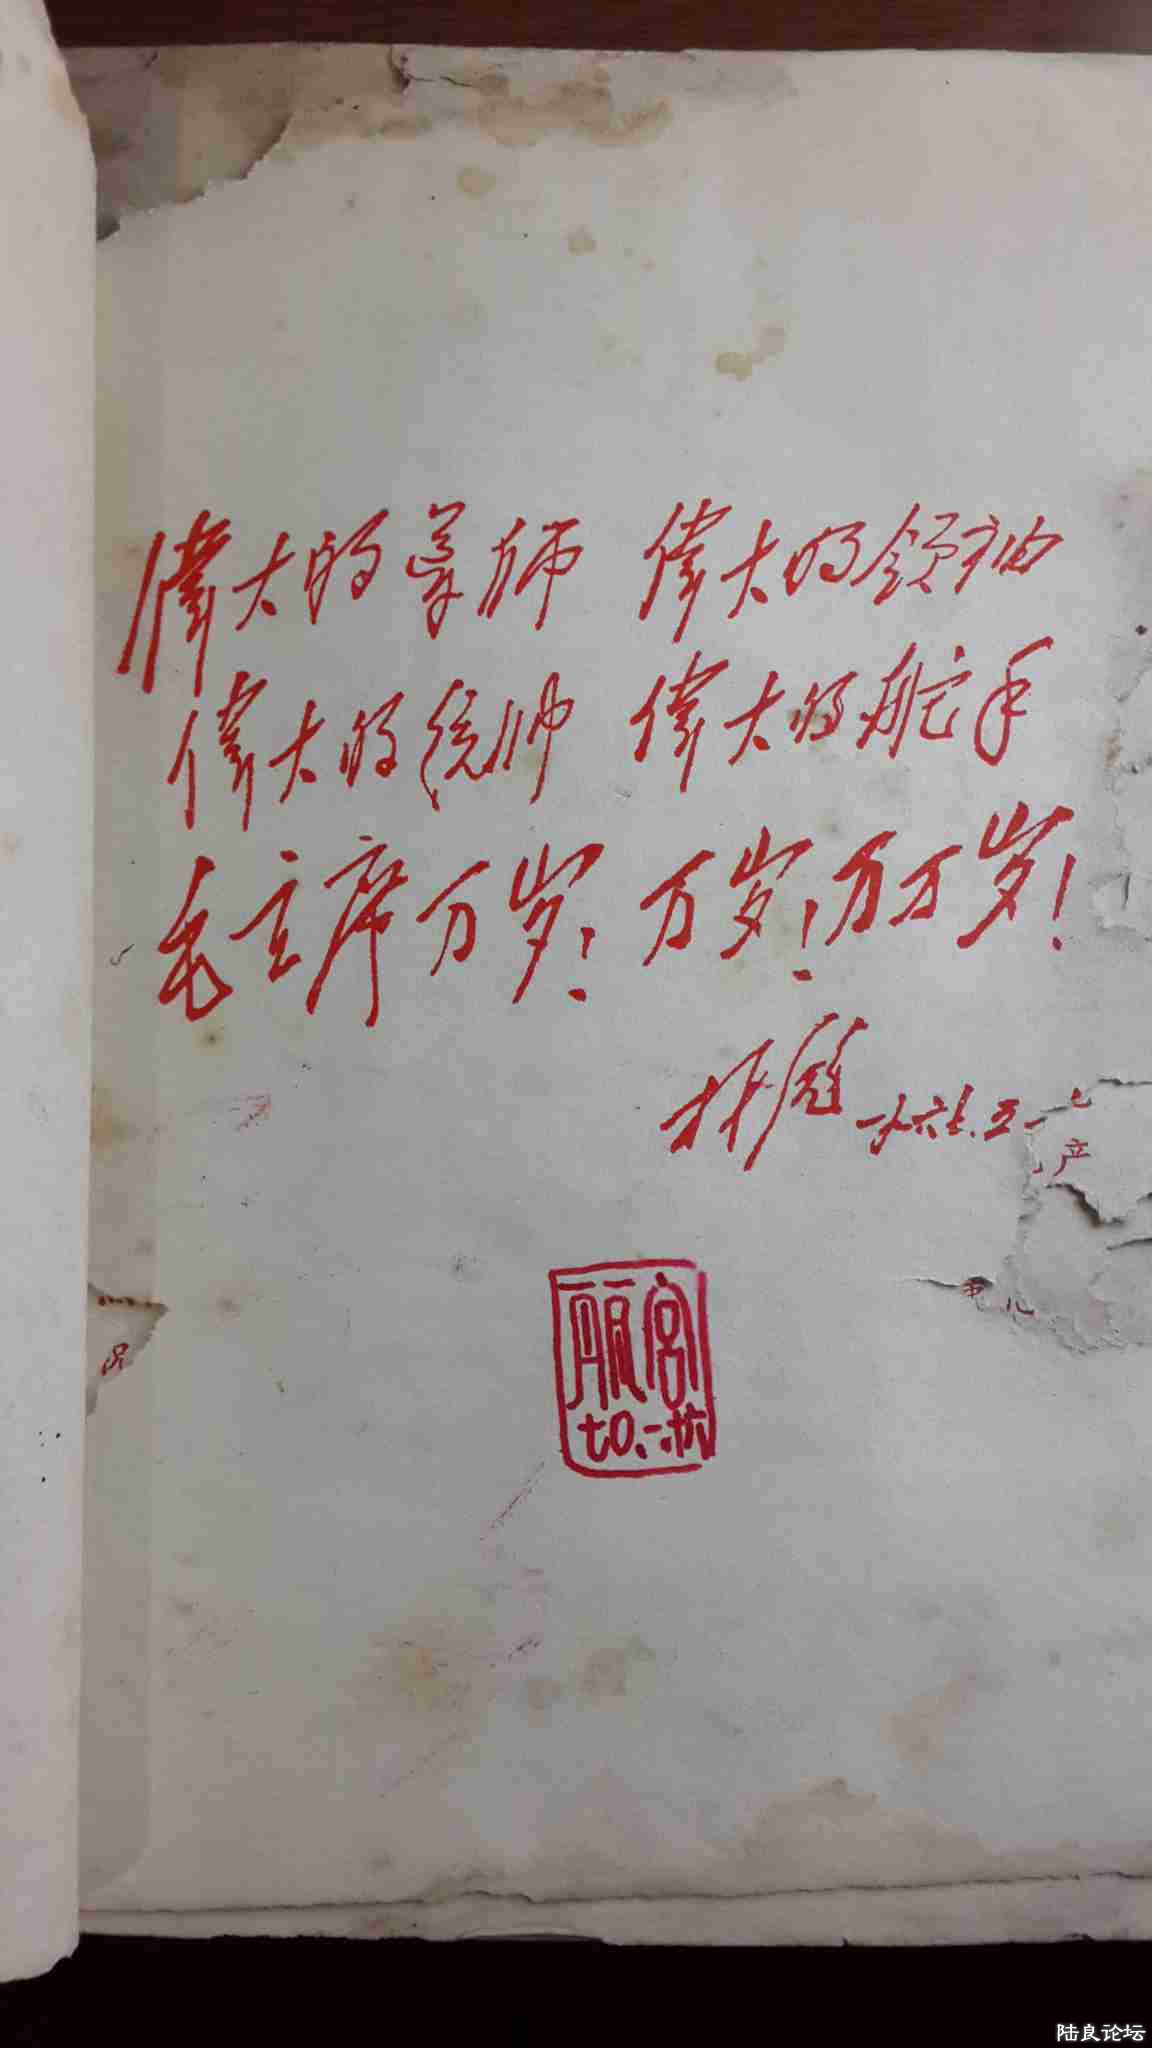 偉大的导师 偉大的领袖
偉大的统帅 偉大的舵手
毛主席万岁！万岁！万万岁！
林彪 一九六七.五.一
七
产
宫
七〇.一.
陆良论坛